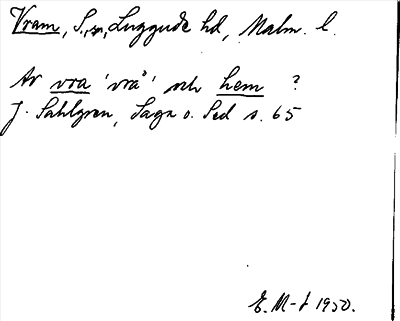 Vram, S. sn, Luggude hd, Malm. l.
Av vra 'vrå' och hem ?
J. Sahlgren, Saga o. Sed s. 65
E. M-f 1950.